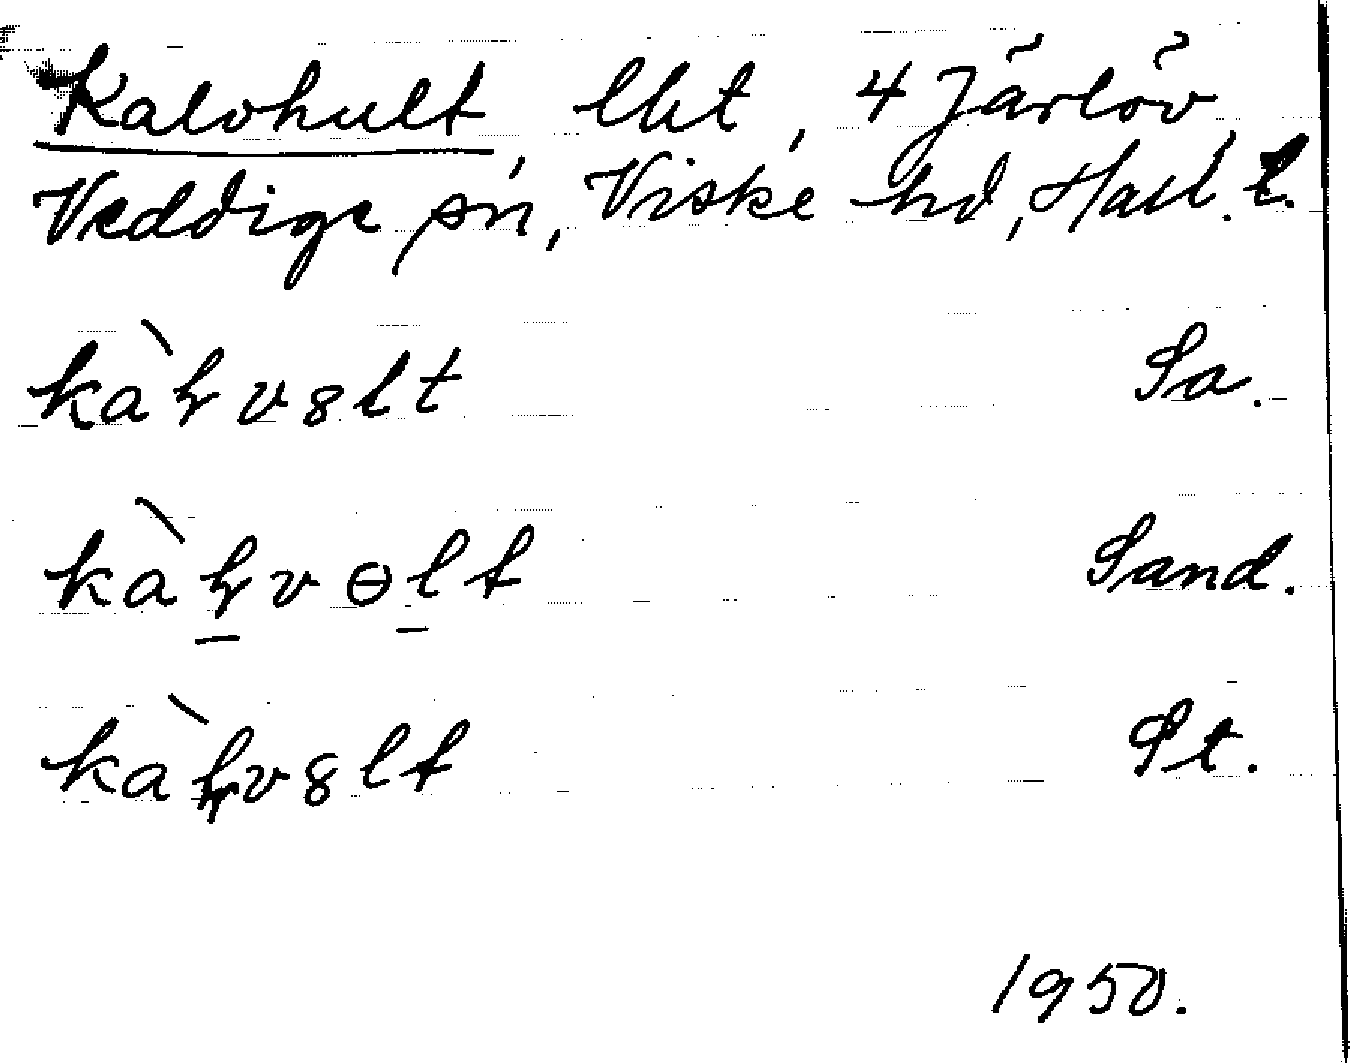 Kalvhult, lht, 4 Järlöv,
Veddige sn, Viske hd, Hall. l.
kàɧvɞlt Sa.
kàɧvɵlt Sand.
kàɧvɞlt St.
1950.